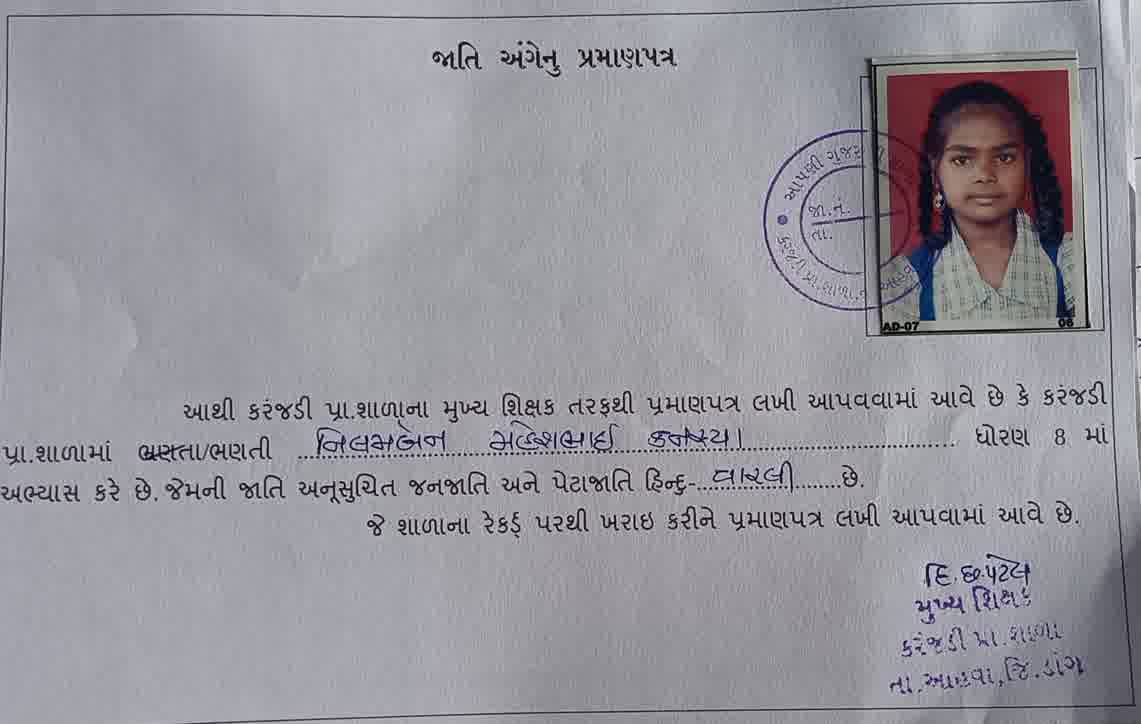 જાતિ અંગેનુ પ્રમાણપત્ર
આપણી ગુજર
જા.નં.
તા.
AD-07 06
આથી કરંજડી પ્રા.શાળાના મુખ્ય શિક્ષક તરફથી પ્રમાણપત્ર લખી આપવવામાં આવે છે કે કરંજડી
પ્રા.શાળામાં ભણતા/ભણતી નિલમબેન મહેશભાઈ કનષ્યા ધોરણ 8 માં
અભ્યાસ કરે છે. જેમની જાતિ અનૂસુચિત જનજાતિ અને પેટાજાતિ હિન્દુ-વારલી છે.
જે શાળાના રેકર્ડ પરથી ખરાઇ કરીને પ્રમાણપત્ર લખી આપવામાં આવે છે.
હિ.છ.પટેલ
મુખ્ય શિક્ષક
કરંજડી પ્રા.શાળા
તા.આહવા,જિ.ડાંગ